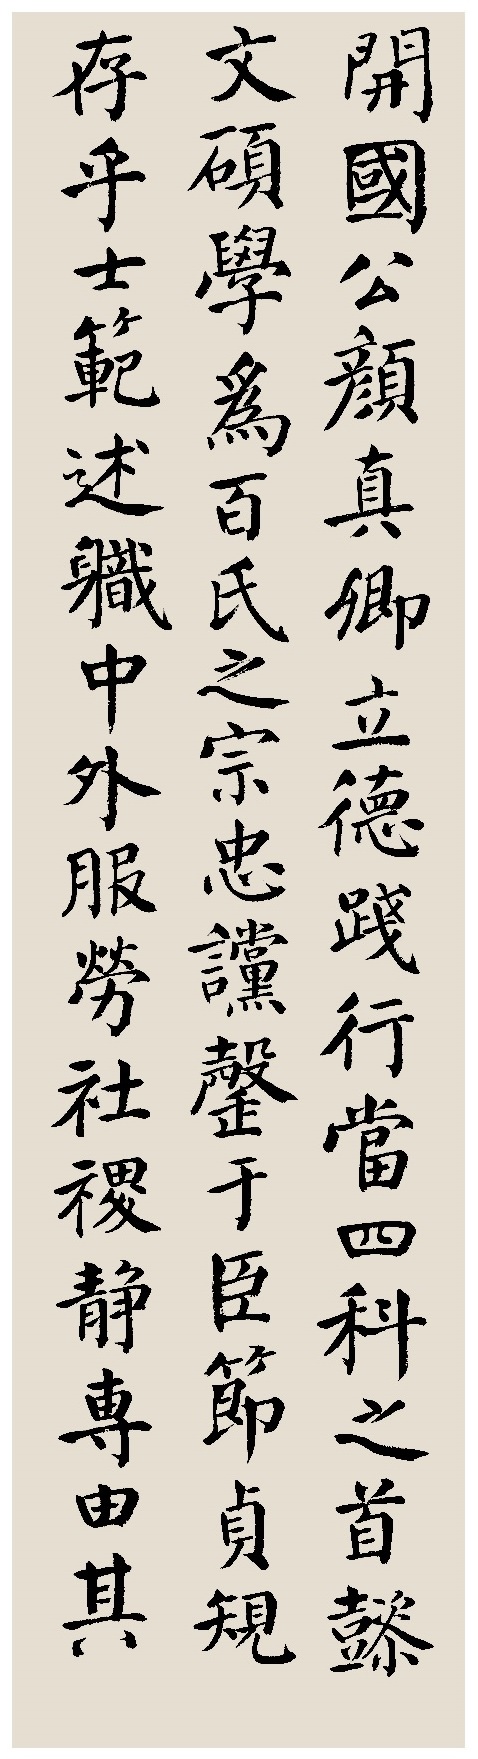 開國公顏真卿立德踐行當四科之首懿
文碩學為百氏之宗忠讜罄于臣節貞規
存乎士範述職中外服勞社稷静專由其